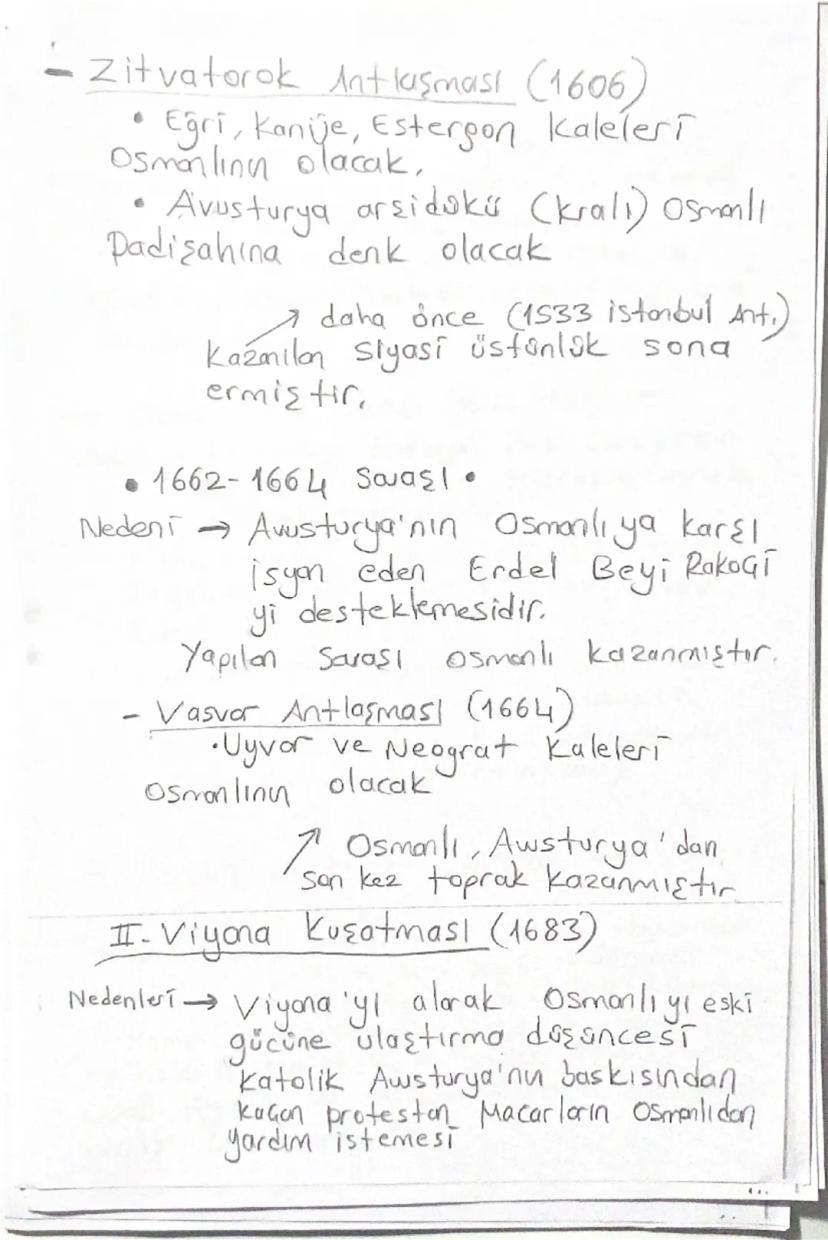 - Zitvatorok Antlaşması (1606)
• Eğri, Kanije, Estergon Kaleleri
Osmanlının olacak,
• Avusturya arşidükü (kralı) Osmanlı
Padişahına denk olacak
↗ daha önce (1533 istanbul Ant.)
Kazanılan siyasi üstünlük sona
ermiştir.
• 1662-1664 Savaşı •
Nedeni → Avusturya'nın Osmanlıya karşı
isyan eden Erdel Beyi Rakoci
yi desteklemesidir.
Yapılan Savaşı Osmanlı kazanmıştır.
- Vasvar Antlaşması (1664)
• Uyvar ve Neograt Kaleleri
Osmanlının olacak
↗ Osmanlı, Avusturya'dan
son kez toprak kazanmıştır
II. Viyana Kuşatması (1683)
Nedenleri → Viyana'yı alarak Osmanlıyı eski
gücüne ulaştırma düşüncesi
Katolik Avusturya'nın baskısından
kaçan protestan Macarların Osmanlıdan
yardım istemesi